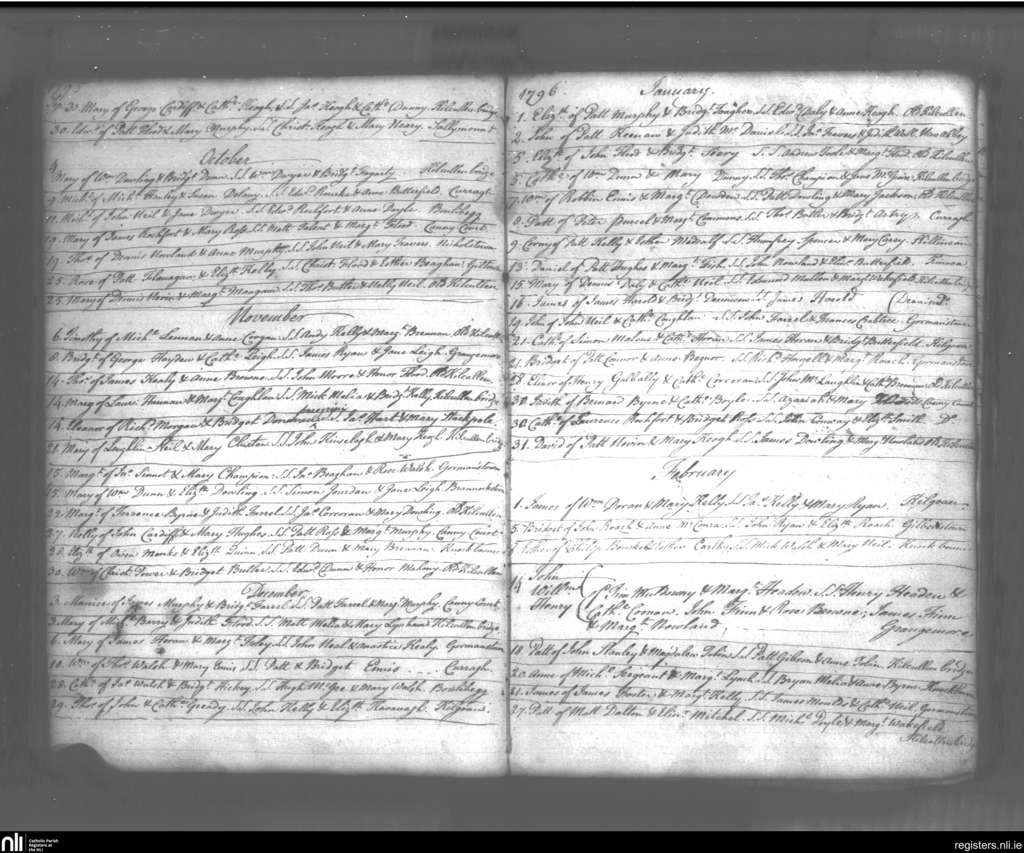 30. Mary of George Cardiff & Cath: Keogh, S.S. Jas. Haugh & Cath: Kilcullen bridge
30. Edwd. of Patt Flood & Mary Murphy. S.S. Christ. Keogh & Mary Neary. Sallymount
October
Mary of Wm Dowling & Bridgt. Dunn. S.S. Wm Dwyer & Bridgt. Fogerty. Kilcullen bridge
9 Mich. of Mich. & Susan Delany. S.S. Edwd. & Anne Butterfield. Curragh
of John Neil & Jane Dwyer. S.S. Edwd. Rochfort & Anne Doyle.
19. Mary of James Rochfort & Mary Ross. S.S. Matt Talent & Margt. Flood. Canny Court
19. Thos. of Dennis Nowland & Anne Murphy. S.S. John Neil & Mary Travers. Nicholstown
25. Rose of Patt Flanagan & Elizth Kelly. S.S. Christ. Flood & Esther Beaghan.
25. Mary of Dennis & Margt. Mangan. S.S. Thos. Butler & Neil. Old Kilcullen
November
6. Timothy of Mich. Lennan & Anne S.S. Andw. Kelly & Margt. Brennan. Old Kilcullen
8. Bridgt. of George Hayden & Cath. Leigh. S.S. James Ryan & Jane Leigh. Grangemore
14. Thos. of James Healy & Anne Browne. S.S. John Moore & Honor Flood. Old Kilcullen
14. Marg. of Laur. & Margt. Coughlan. S.S. Mick Melia & Bridgt. Kelly. Kilcullen bridge
14. Eleanor of Richd. Morgan & Bridget S.S. Jas. Hart & Mary Stackpole
21. Mary of Laughlin Neil & Mary S.S. John & Mary Kilcullen bridge
15. Margt. of Jno. Sinnot & Mary Champion. S.S. Jno. Beaghan & Rose Walsh. Gormanstown
15. Mary of Wm Dunn & Elizth Dowling. S.S. Simon Jourdan & Jane Leigh. Brannockstown
22. Margt. of Terrence Byrne & Judith Farrel. S.S. Jas. Corcoran & Mary Dowling. Old Kilcullen
27. Nelly of John Cardiff & Mary Hughes. S.S. Patt Ross & Margt. Murphy. Canny Court
28. Elizth of Owen Monks & Elizth Quinn. S.S. Patt Dunn & Mary Brennan. Knockbawn
30. Wm of Christ. Power & Bridget Butler. S.S. Edwd Dunn & Honor Mahony. Old Kilcullen
December
3. Maurice of James Murphy & Bridgt. Farrel. S.S. Patt Farrel & Margt. Murphy. Canny Court
3. Mary of Mich. Berry & Judith Flood. S.S. Matt Melia & Mary Lynham. Kilcullen bridge
6. Mary of James Horan & Margt. Foley. S.S. John Neal & Anastas. Healy. Gormanstown
10. Wm of Thos. Walsh & Mary Ennis. S.S. Patt & Bridget Ennis. Curragh
28. Cath. of Jas. Walsh & Bridgt. Hickey. S.S. Hugh McGee & Mary Walsh.
29. Thos. of John & Cath. Greedy. S.S. John Kelly & Elizth Kavanagh. Kilgowan
1796 January
1. Elizth. of Patt Murphy & Bridgt. S.S. Edwd. Daly & Anne Keogh. Old Kilcullen
2. John of Patt Keenan & Judith McDaniel. S.S. Jno. Travers & Judith Walsh. New Abbey
5. Elizth of John Flood & Bridgt. Story. S.S. Andrew & Margt. Flood. Old Kilcullen
5. Cath. of Wm Dunn & Mary S.S. Thos. Champion & Jane Kilcullen bridge
7. Wm of Robbin Ennis & Margt. S.S. Patt Dowling & Mary Jackson. Old Kilcullen
8. Patt of Peter Purcel & Margt. Commons. S.S. Thos. Butler & Bridgt. Curragh
9. of Patt Kelly & Esther Medcalf. S.S. Humfrey Spencer & Mary Carey. Killinean
13. Daniel of Patt Hughes & Margt. Fish. S.S. John Nowland & Butterfield.
15. Mary of Dennis Daly & Cath. Neil. S.S. Edmund Mallon & Mary Wakefield. Kilcullen bridge
16. James of James Harold & Bridgt. Dennison. S.S. James Harold
19. John of John Neil & Cath. Coughlan. S.S. John Farrel & Frances Crabtree. Gormanstown
21. Cath. of Simon Malone & Cath. Horan. S.S. James Horan & Bridgt. Butterfield. Kilgowan
21. Bridget of Patt Connor & Anne S.S. Mich. Howell & Margt. Roach. Gormanstown
28. Elinor of Henry Gallally & Cath. Corcoran. S.S. John McLaughlin & Cath. Brennan. Old Kilcullen
30. Judith of Bernard Byrne & Cath. Boyle. S.S. Azariah & Mary Canny Court
30. Cath. of Laurence Rochfort & Bridget Ross. S.S. John Conway & Elizth. Smith. Do.
31. David of Patt & Mary Keogh. S.S. James Dowling & Mary Nowland. Old Kilcullen
February
1. James of Wm Doran & Mary Kelly. S.S. Jas. Kelly & Mary Ryan. Kilgowan
5. Bridget of John Roach & Anne S.S. John Ryan & Elizth Roach. Gilbertstown
Esther of Philip & Esther S.S. Mick Walsh & Mary Neil. Knockbawn
14 John
Willm
Henry
of Jim McEvoy & Margt. Headon. S.S. Henry Headen &
Cath. Conran. John Finn & Rose Browne; James Finn
& Margt. Nowland
Grangemore
18. Patt of John Stanley & Magdalen Tobin. S.S. Patt Gibson & Anne Tobin. Kilcullen bridge
20. Anne of Mich. Sergeant & Margt. Lynch. S.S. Bryan Melia & Anne Byrne. Knockbawn
21. James of James Foster & Margt. Kelly. S.S. James Moulds & Cath. Neil. Gormanstown
27. Patt of Matt Dalton & Elinr. Mitchel. S.S. Mich. Doyle & Margt. Wakefield
Kilcullen bridge
nli
Catholic Parish
Registers at
the NLI
registers.nli.ie